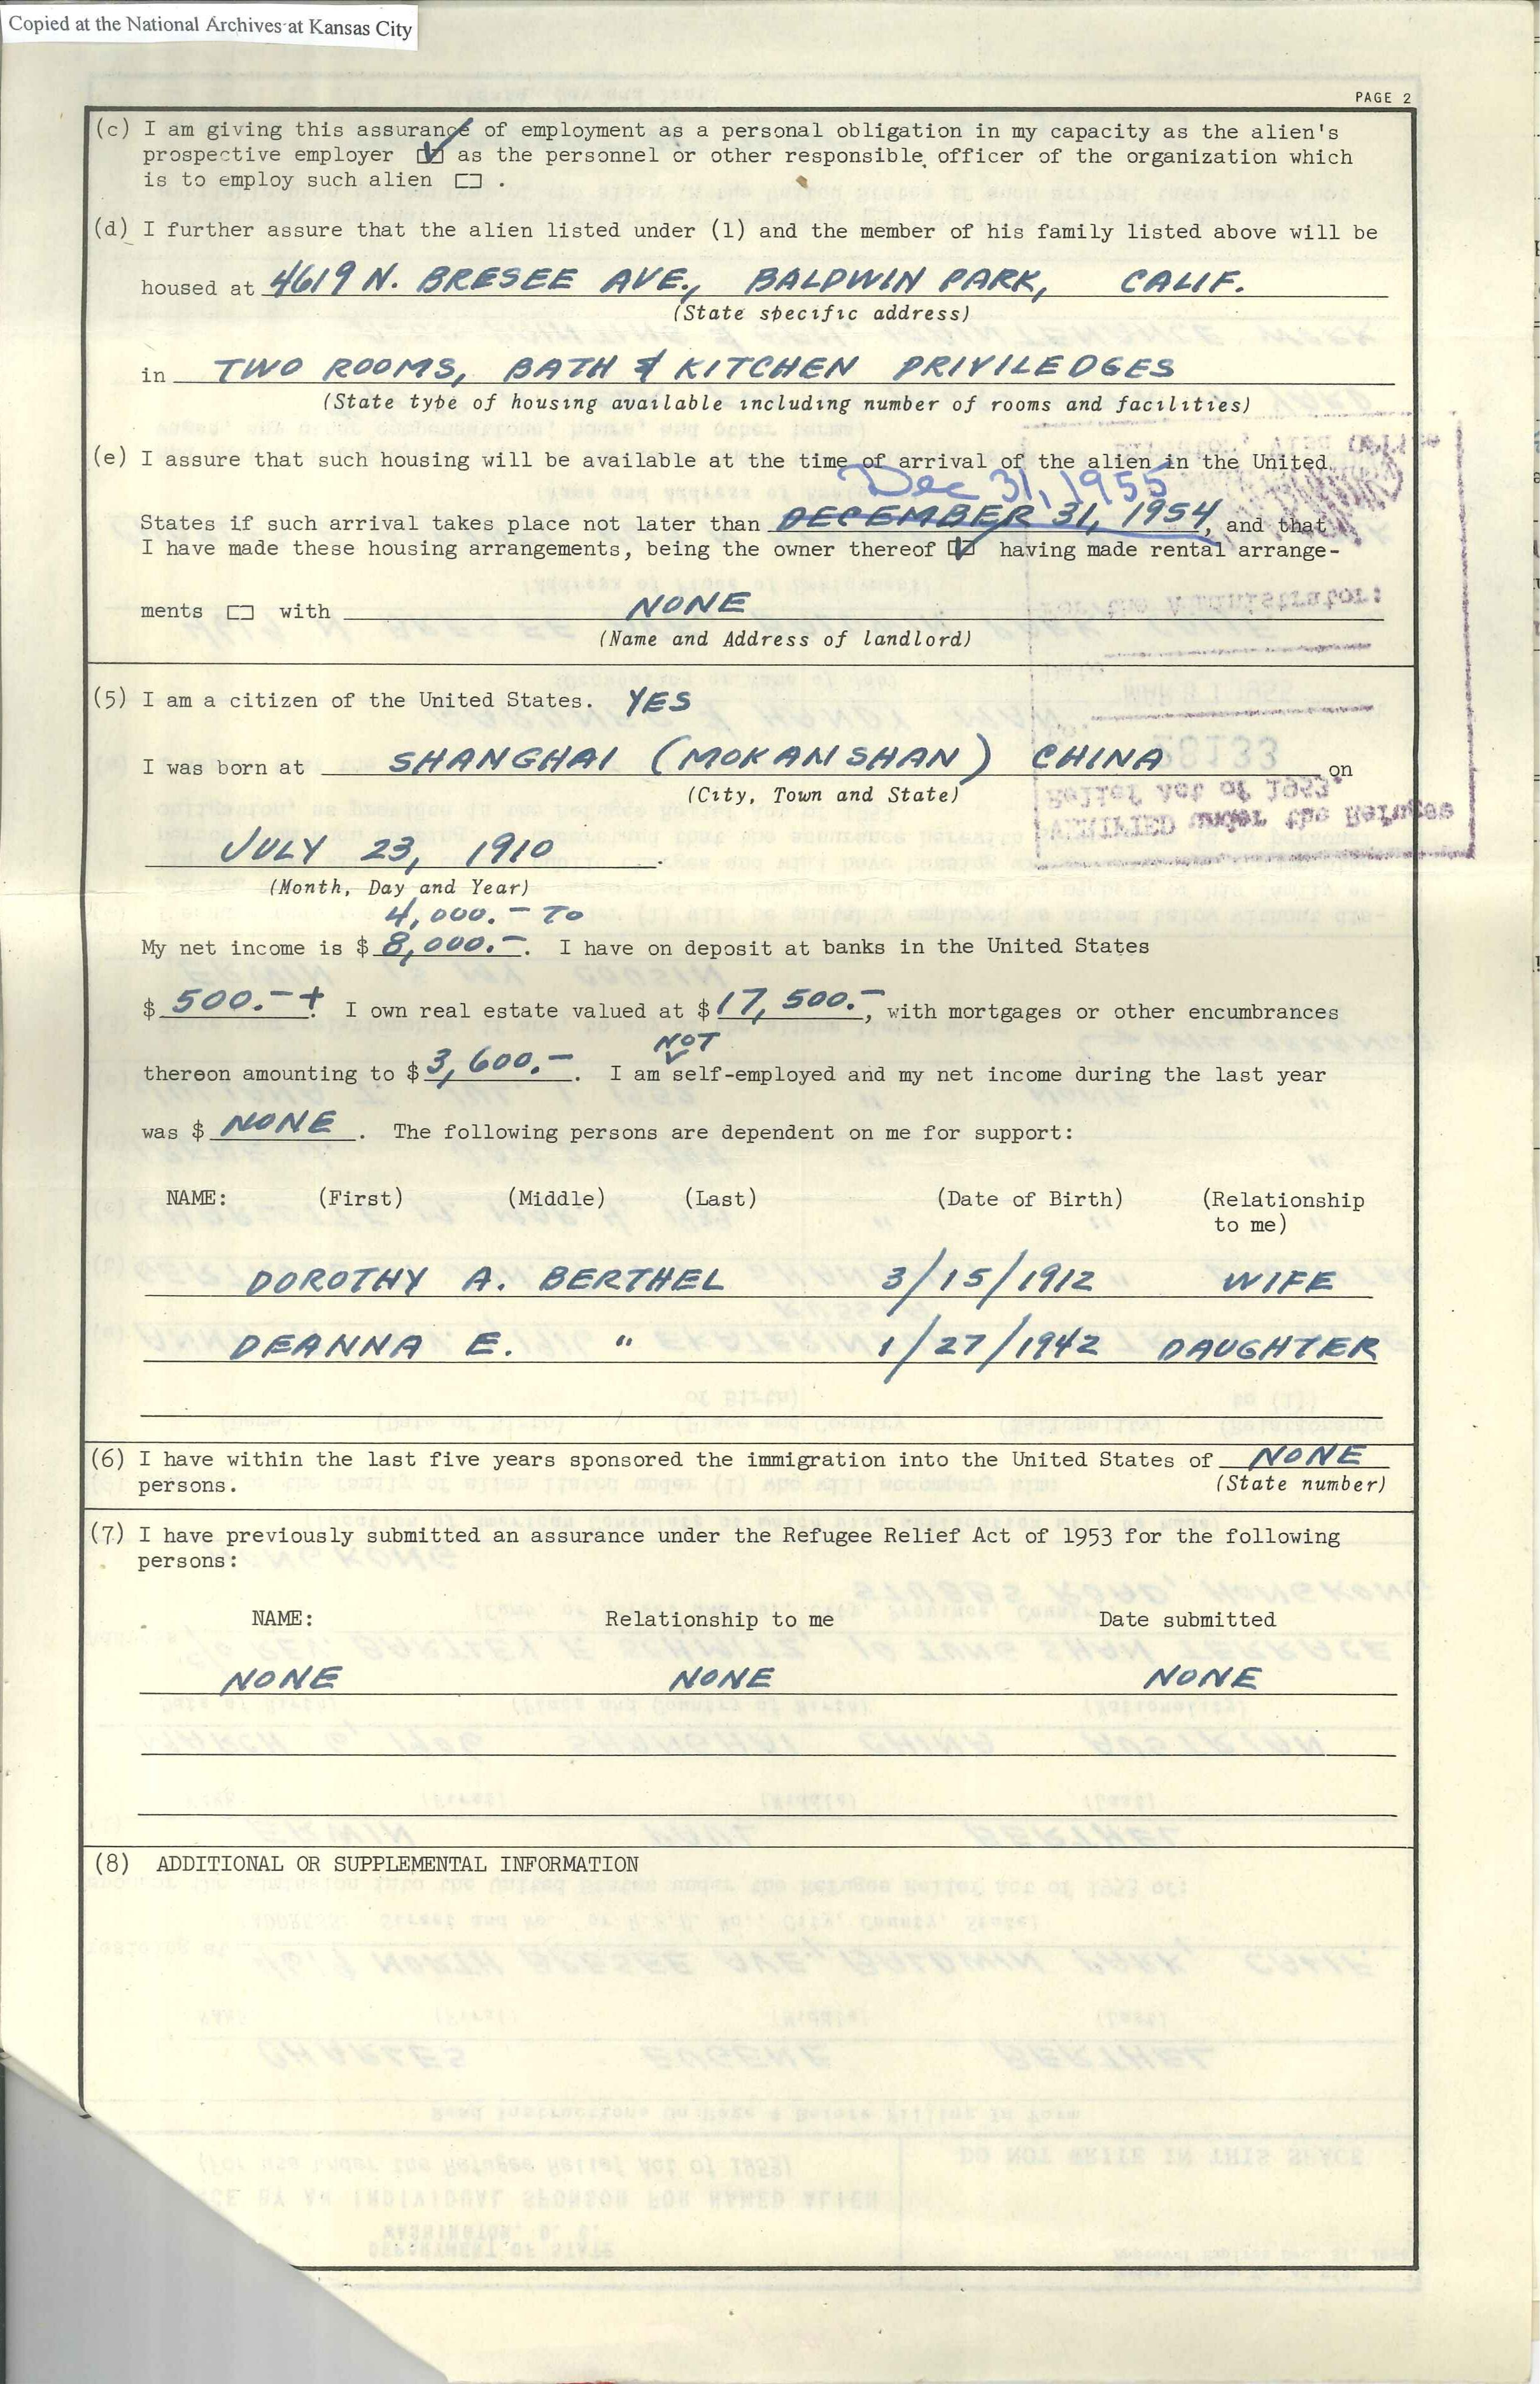 Copied at the National Archives at Kansas City
PAGE 2
(c) I am giving this assurance of employment as a personal obligation in my capacity as the alien's
prospective employer ☑ as the personnel or other responsible officer of the organization which
is to employ such alien ☐ .
(d) I further assure that the alien listed under (1) and the member of his family listed above will be
housed at 4619 N. BRESEE AVE., BALDWIN PARK, CALIF.
(State specific address)
in TWO ROOMS, BATH & KITCHEN PRIVILEDGES
(State type of housing available including number of rooms and facilities)
(e) I assure that such housing will be available at the time of arrival of the alien in the United
Dec 31, 1955
States if such arrival takes place not later than DECEMBER 31, 1954, and that
I have made these housing arrangements, being the owner thereof ☑ having made rental arrange-
ments ☐ with NONE
(Name and Address of landlord)
For the Administrator:
(5) I am a citizen of the United States. YES
MAR 31 1955
28133
I was born at SHANGHAI (MOKANSHAN) CHINA on
(City, Town and State)
Relief Act of 1953.
VERIFIED under the Refugee
JULY 23, 1910
(Month, Day and Year)
4,000.- TO
My net income is $ 8,000.-. I have on deposit at banks in the United States
$ 500.-+. I own real estate valued at $ 17,500.-, with mortgages or other encumbrances
NOT
thereon amounting to $ 3,600.-. I am self-employed and my net income during the last year
was $ NONE. The following persons are dependent on me for support:
NAME: (First) (Middle) (Last) (Date of Birth) (Relationship
to me)
DOROTHY A. BERTHEL 3/15/1912 WIFE
DEANNA E. " 1/27/1942 DAUGHTER
(6) I have within the last five years sponsored the immigration into the United States of NONE
persons. (State number)
(7) I have previously submitted an assurance under the Refugee Relief Act of 1953 for the following
persons:
NAME: Relationship to me Date submitted
NONE NONE NONE
(8) ADDITIONAL OR SUPPLEMENTAL INFORMATION